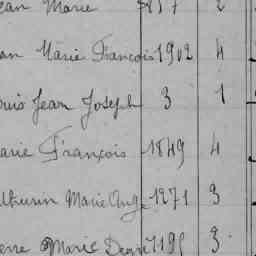 ean Marie 1857 2
an Marie François 1902 4
ouis Jean Joseph 3 1
arie François 1849 4
athurin Marie Ange 1271 3
erre Marie 1195 3